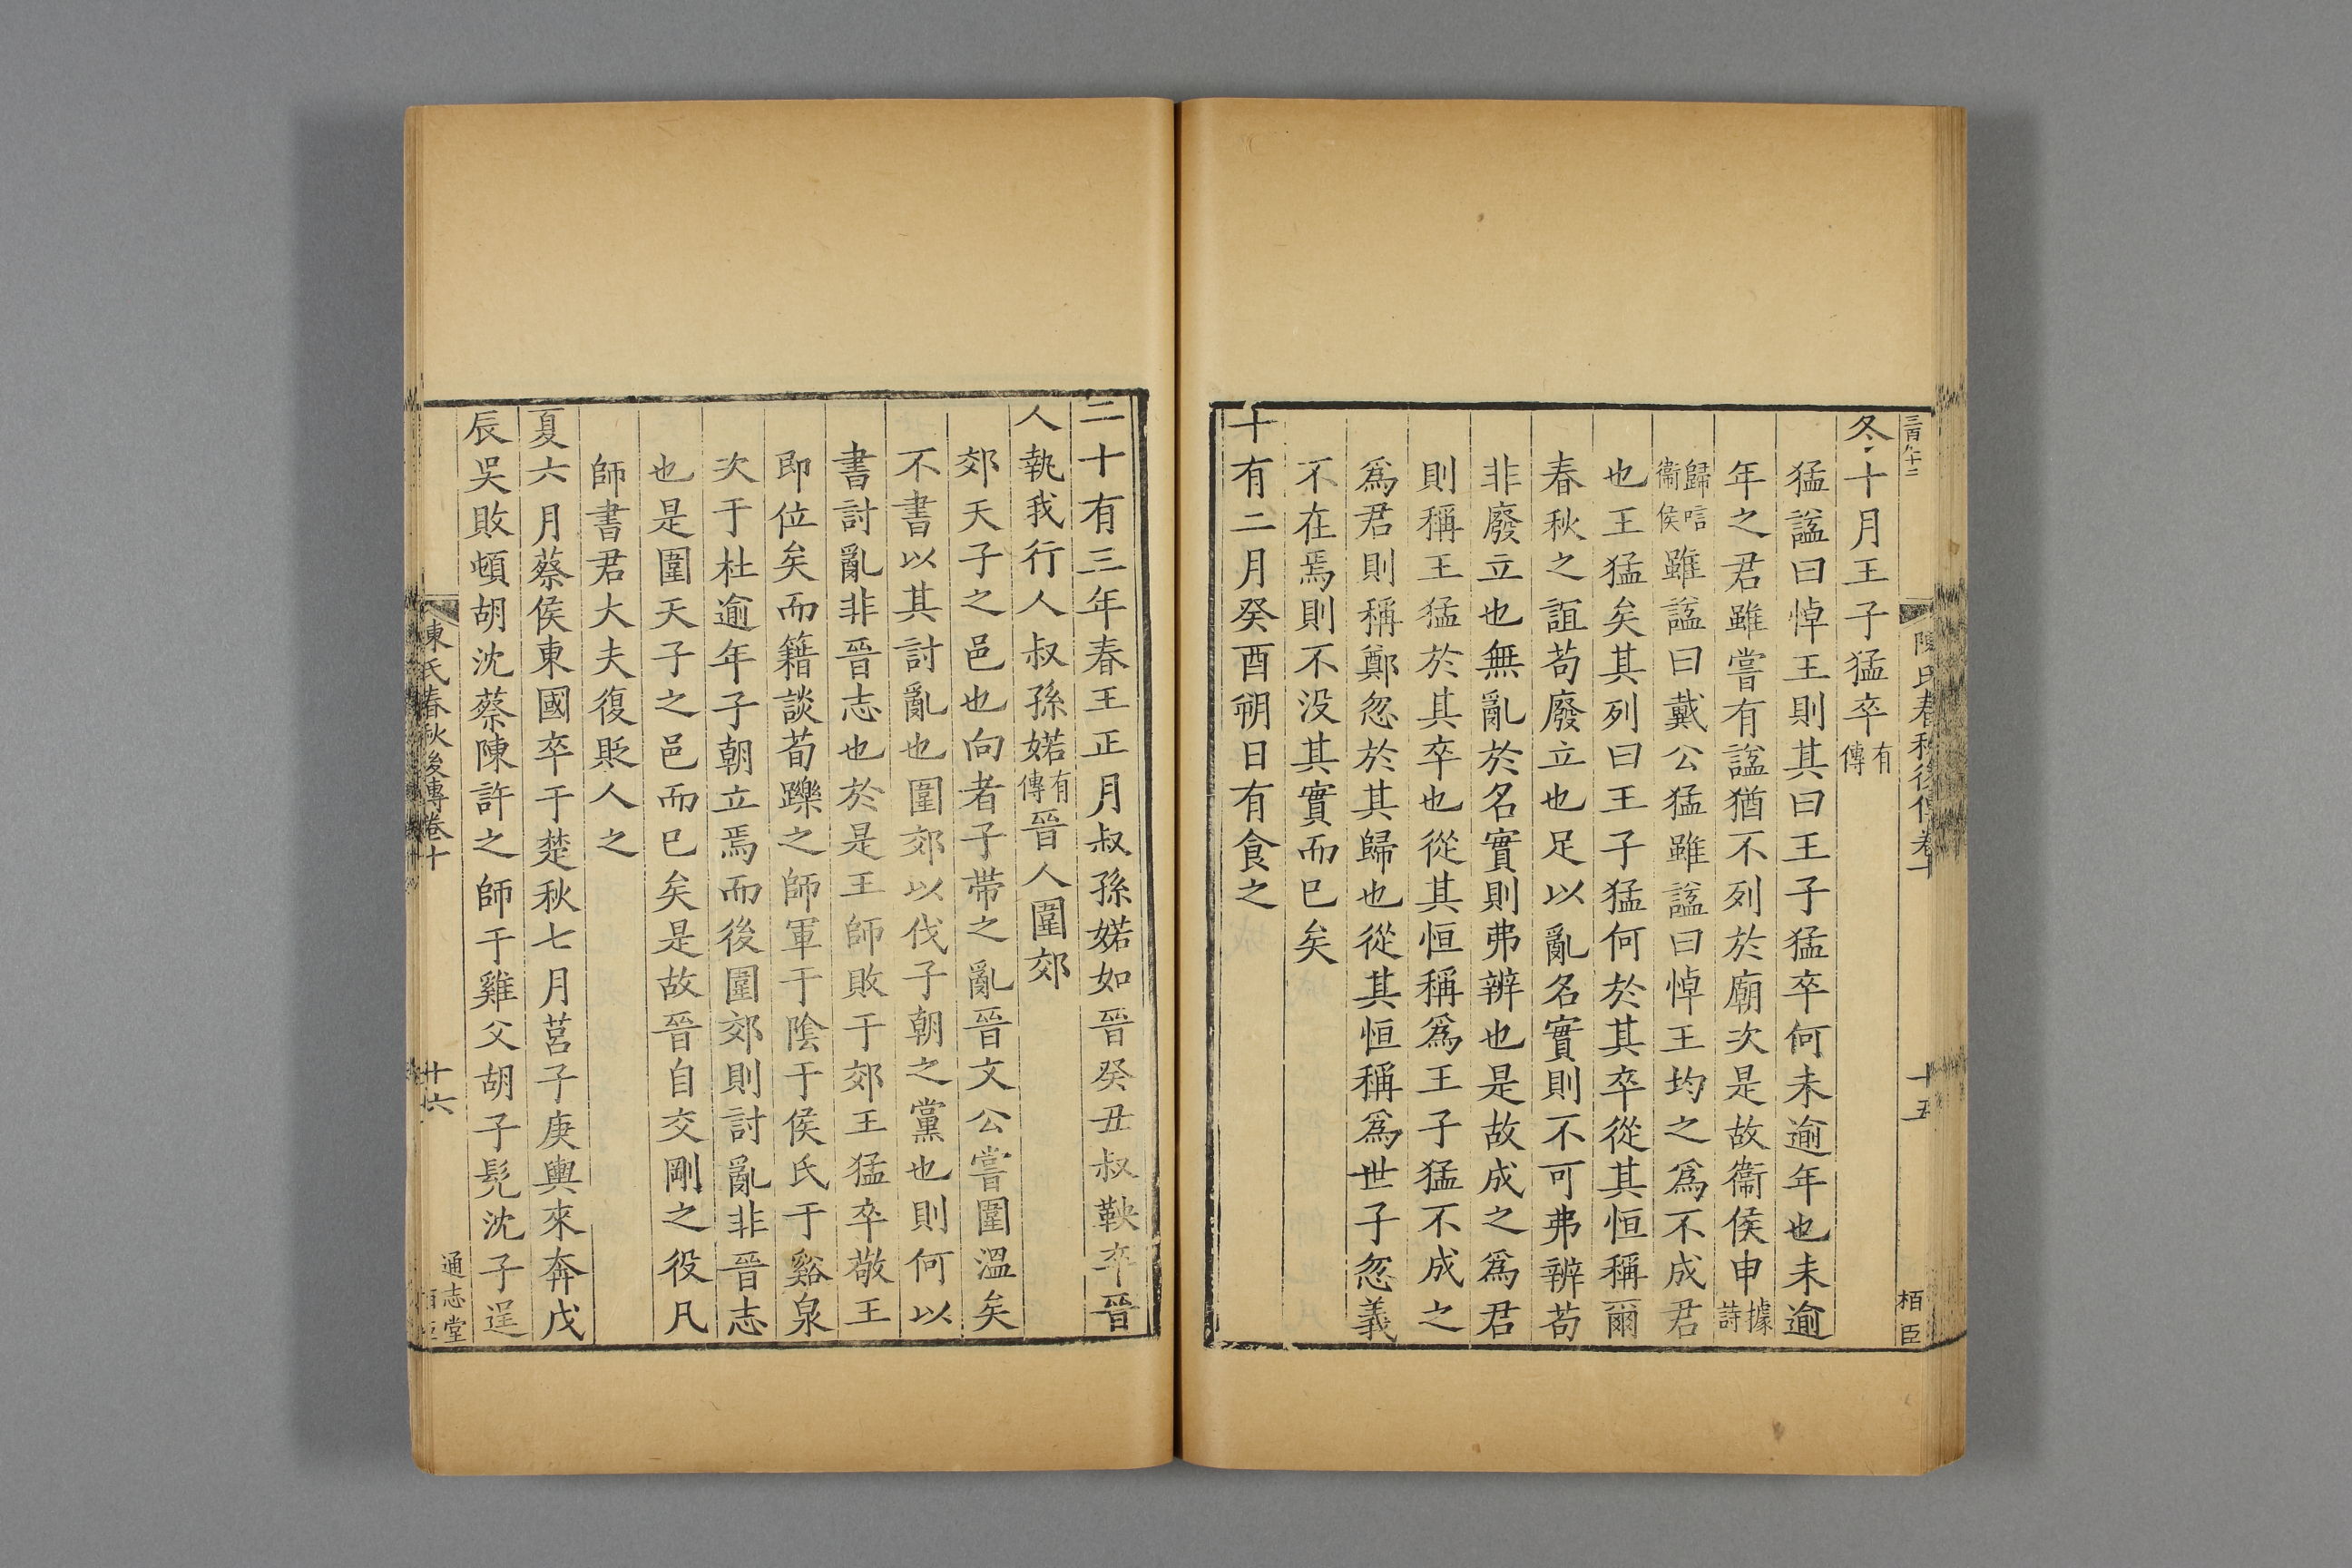 三百八十二
陳氏春秋後傳卷十
十五
栢臣
冬十月王子猛卒有傳
猛諡曰悼王則其曰王子猛卒何未逾年也未逾
年之君雖嘗有諡猶不列於廟次是故衞侯申據詩
歸唁衞侯雖諡曰戴公猛雖諡曰悼王均之爲不成君
也王猛矣其列曰王子猛何於其卒從其恒稱爾
春秋之誼苟廢立也足以亂名實則不可弗辨苟
非廢立也無亂於名實則弗辨也是故成之爲君
則稱王猛於其卒也從其恒稱爲王子猛不成之
爲君則稱鄭忽於其歸也從其恒稱爲世子忽義
不在焉則不没其實而已矣
十有二月癸酉朔日有食之
二十有三年春王正月叔孫婼如晉癸丑叔鞅卒晉
人執我行人叔孫婼有傳晉人圍郊
郊天子之邑也向者子帶之亂晉文公嘗圍溫矣
不書以其討亂也圍郊以伐子朝之黨也則何以
書討亂非晉志也於是王師敗于郊王猛卒敬王
即位矣而籍談荀躒之師軍于陰于侯氏于谿泉
次于杜逾年子朝立焉而後圍郊則討亂非晉志
也是圍天子之邑而已矣是故晉自交剛之役凡
師書君大夫復貶人之
夏六月蔡侯東國卒于楚秋七月莒子庚輿來奔戊
辰吳敗頓胡沈蔡陳許之師于雞父胡子髡沈子逞
陳氏春秋後傳卷十
十六
通志堂